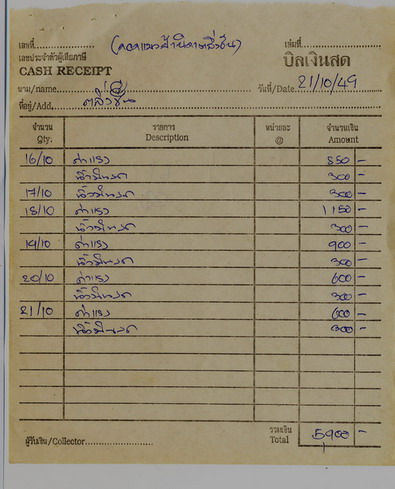 เลขที่ เล่มที่
เลขประจำตัวผู้เสียภาษี บิลเงินสด
CASH RECEIPT
นาม/name วันที่/Date 21/10/49
ที่อยู่/Add. ตลิ่งชัน
จำนวน รายการ หน่วยละ จำนวนเงิน
Qty. Description @ Amount
16/10 ค่าแรง 850 -
น้ำมันรถ 300 -
17/10 น้ำมันรถ 300 -
18/10 ค่าแรง 1150 -
น้ำมันรถ 300 -
19/10 ค่าแรง 900 -
น้ำมันรถ 300 -
20/10 ค่าแรง 600 -
น้ำมันรถ 300 -
21/10 ค่าแรง 600 -
น้ำมันรถ 300 -
รวมเงิน
ผู้รับเงิน/Collector Total 5900 -